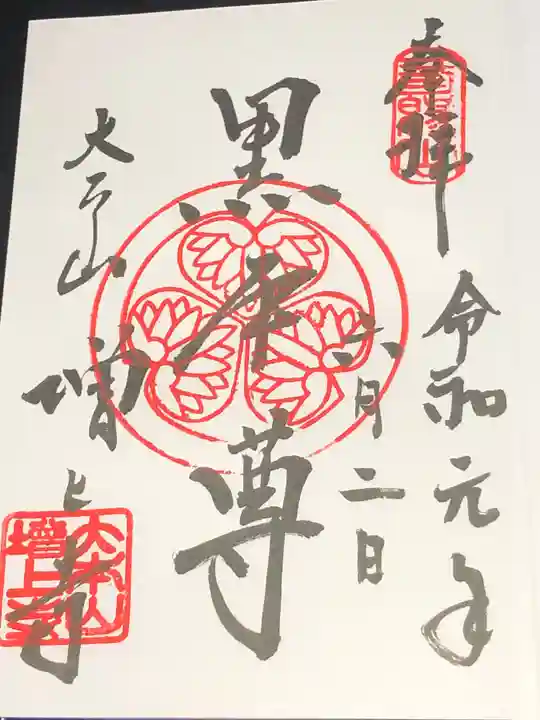 奉拝
令和元年
六月二日
黒本尊
大本山
増上寺
大本山
増上寺